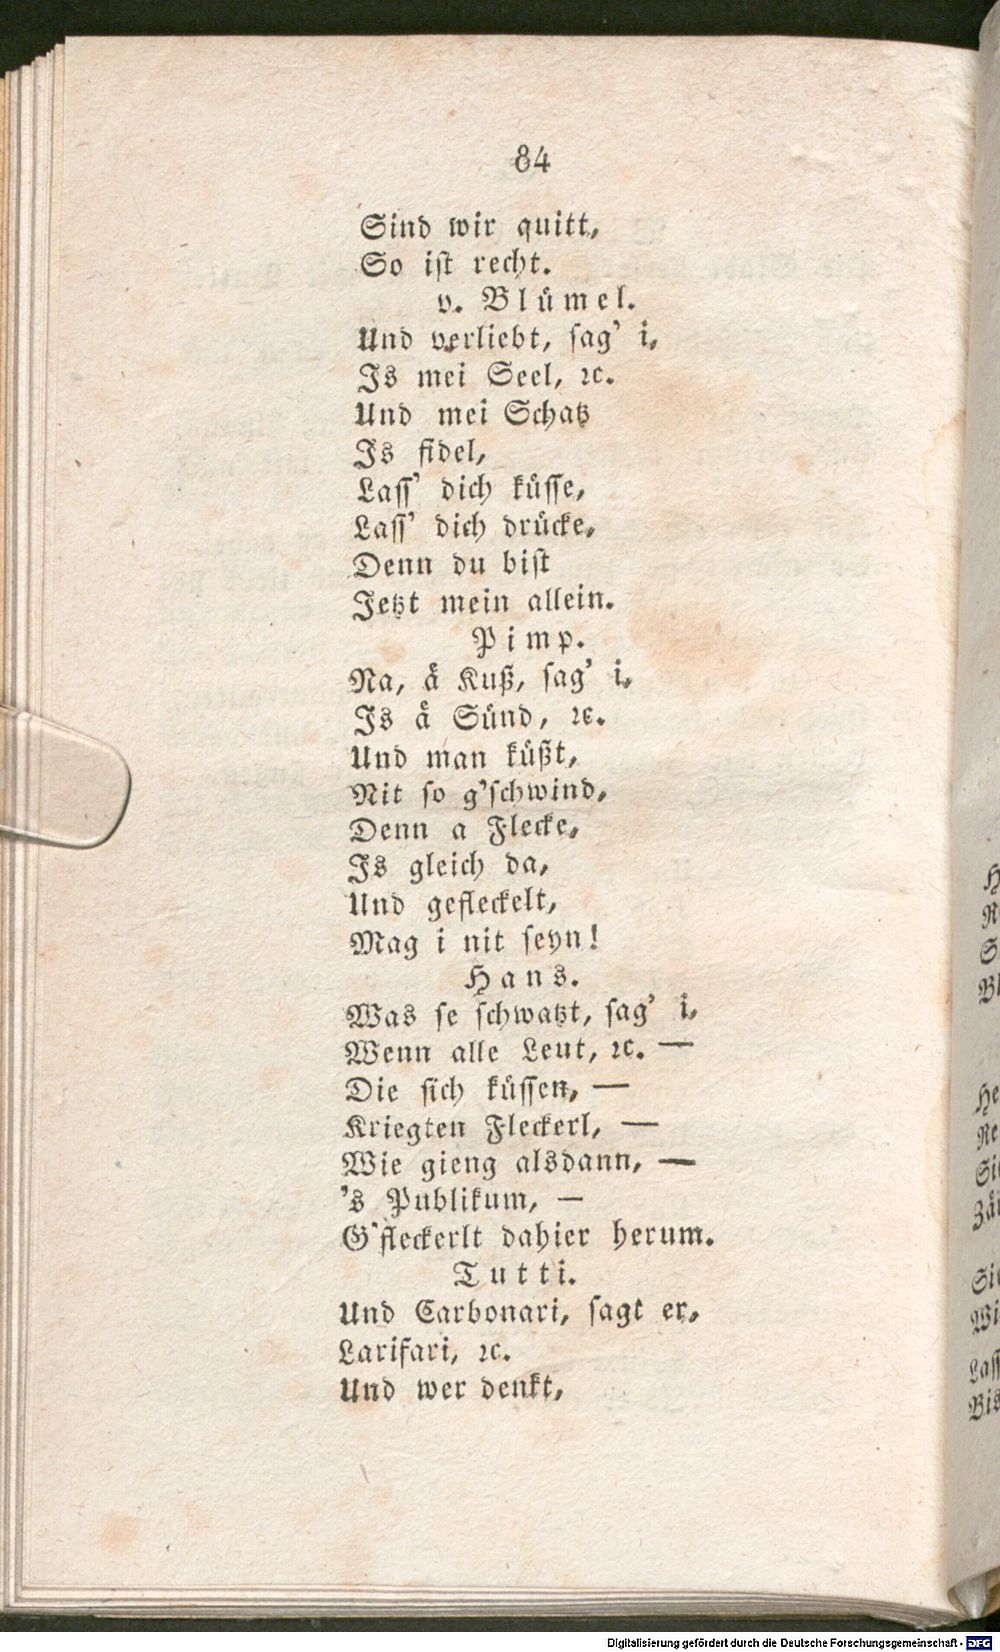 84
Sind wir quitt,
So ist recht.
v. Blümel.
Und verliebt, sag' i,
Is mei Seel, ꝛc.
Und mei Schatz
Is fidel,
Lass' dich küsse,
Lass' dich drücke,
Denn du bist
Jetzt mein allein.
Pimp.
Na, å Kuß, sag' i,
Is å Sünd, ꝛc.
Und man küßt,
Nit so g'schwind,
Denn a Flecke,
Is gleich da,
Und gefleckelt,
Mag i nit seyn!
Hans.
Was se schwatzt, sag' i,
Wenn alle Leut, ꝛc. —
Die sich küssen, —
Kriegten Fleckerl, —
Wie gieng alsdann, —
's Publikum, —
G'fleckerlt dahier herum.
Tutti.
Und Carbonari, sagt er,
Larifari, ꝛc.
Und wer denkt,
Digitalisierung gefördert durch die Deutsche Forschungsgemeinschaft - DFG